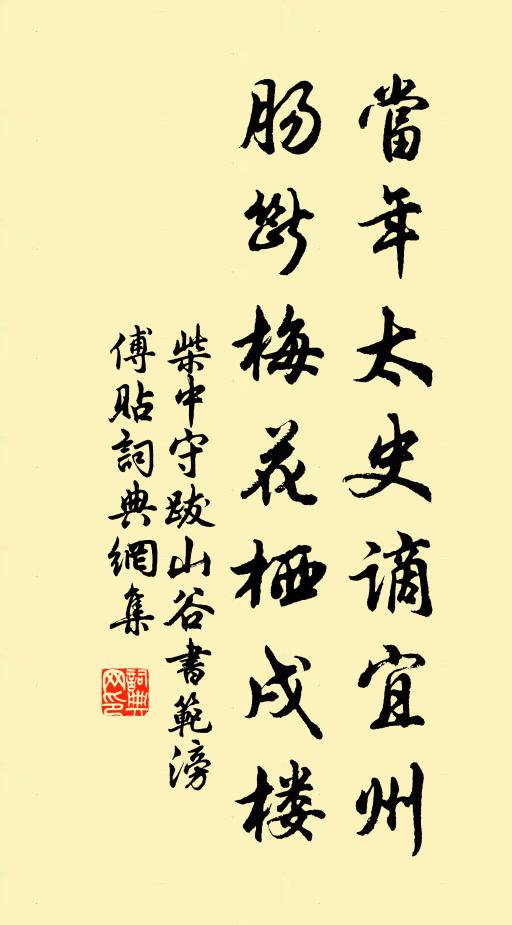 當年太史謫宜州
肠斷梅花栖戍楼
柴中守跋山谷書範滂
傅貼詞典網集
詞典网印